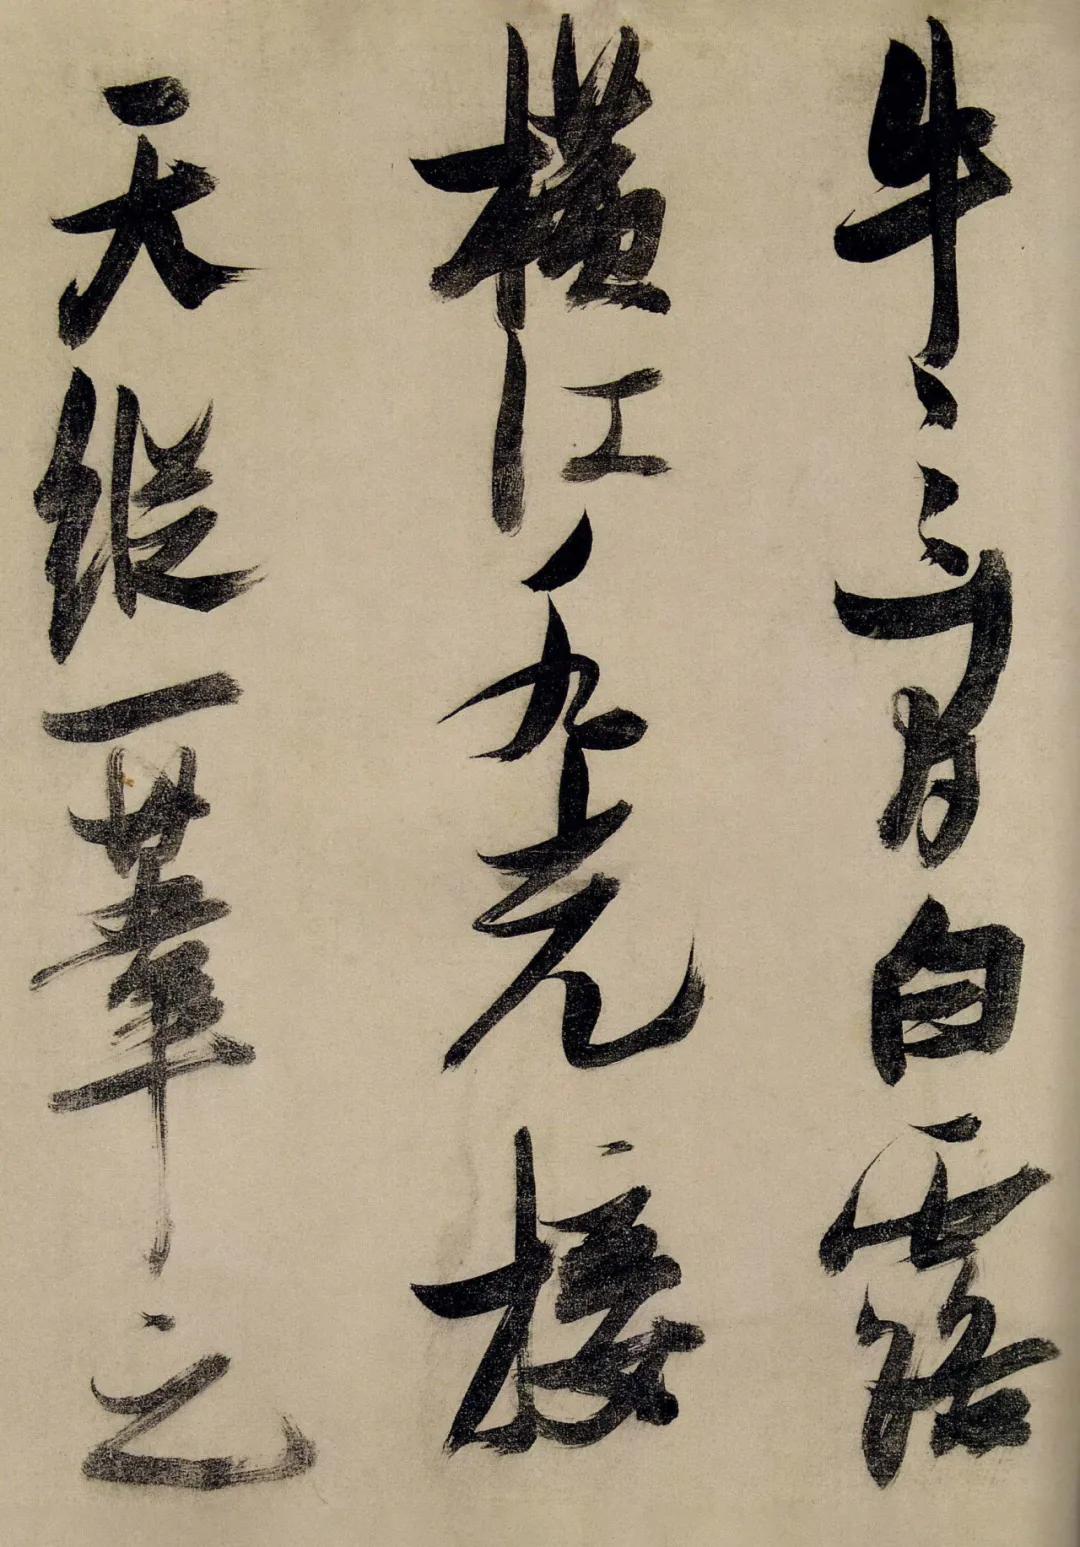 牛之間白露
橫江水光接
天縱一葦之